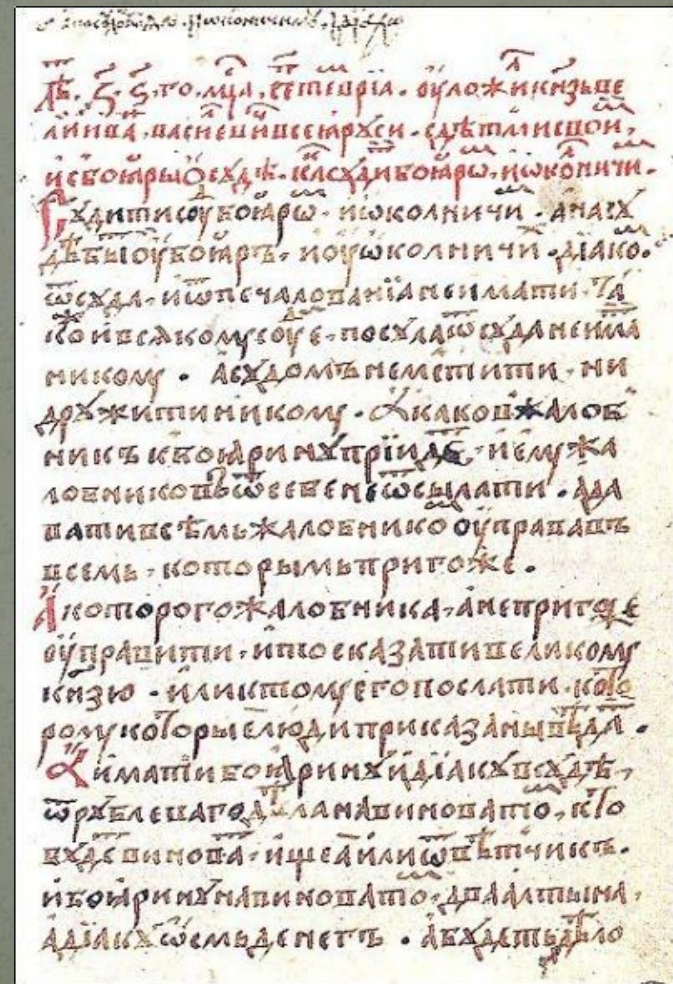 лѣ ҂ѕ҃ ѕ҃ го мц҃а септеврїа оуложи кн҃зь ве
ликїи ива васиевичь всеꙗ руси с дѣтми свои
и с боꙗры ѡ судѣ ка суди боꙗрѡ и ѡколничи
Судити су боꙗрѡ и ѡколничи а на су
дѣ быти оу боꙗръ и оу ѡколничи дїако
а посула ѿ суда и ѿ печалованїа не имати та
ко и всѧкому суе посула ѿ суда не има
никому а судомъ не мстити ни
дружити никому а каков жалоб
никъ к боꙗрину прїиде и ему жа
лобниковъ ѿ себе не ѿсылати а да
вати всѣмь жалобнико оуправа въ
всемь которымь пригоже
А которого жалобника а не пригоже
оуправити и то сказати великому
кн҃зю или к тому его послати кото
рому которые люди приказаны вѣда
А имати боꙗрину и дїаку в судѣ
ѿ рублеваго дѣла на виноватѡ кто
буде винова ищеа или ѿвѣтчикъ
и боꙗрину на виноватѡ два алтына
а дїаку ѡсмь денегъ а будеть дѣло